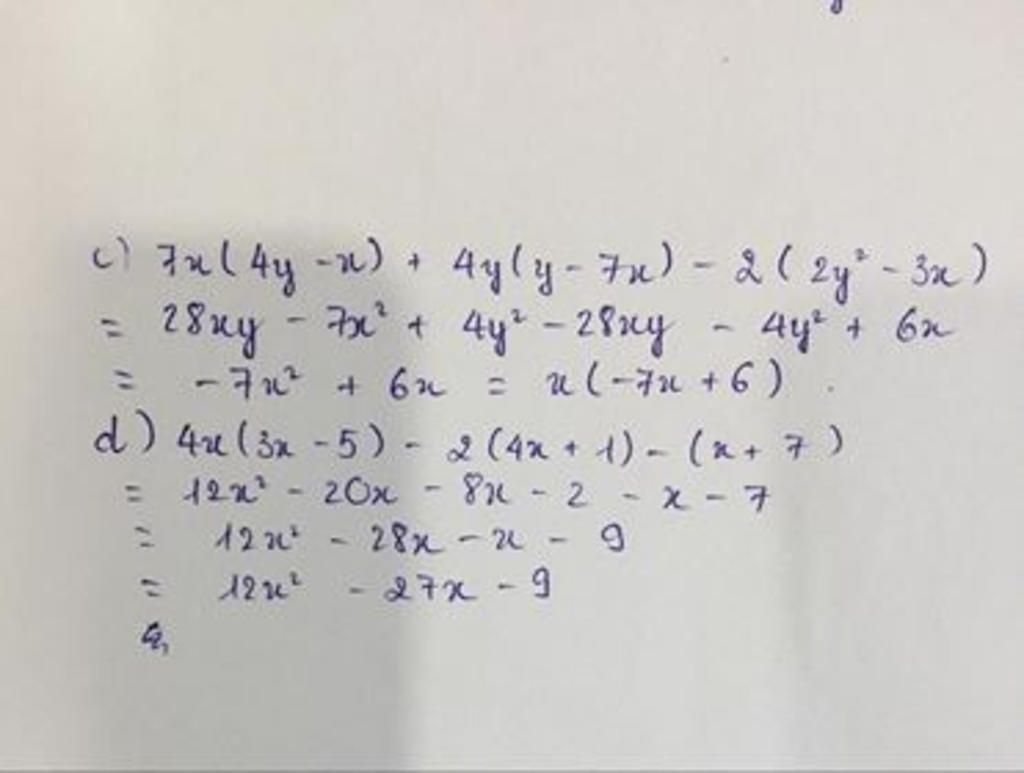 c) 7x(4y - x) + 4y(y - 7x) - 2(2y² - 3x)
= 28xy - 7x² + 4y² - 28xy - 4y² + 6x
= -7x² + 6x = x(-7x + 6).
d) 4x(3x - 5) - 2(4x + 1) - (x + 7)
= 12x² - 20x - 8x - 2 - x - 7
= 12x² - 28x - x - 9
= 12x² - 27x - 9